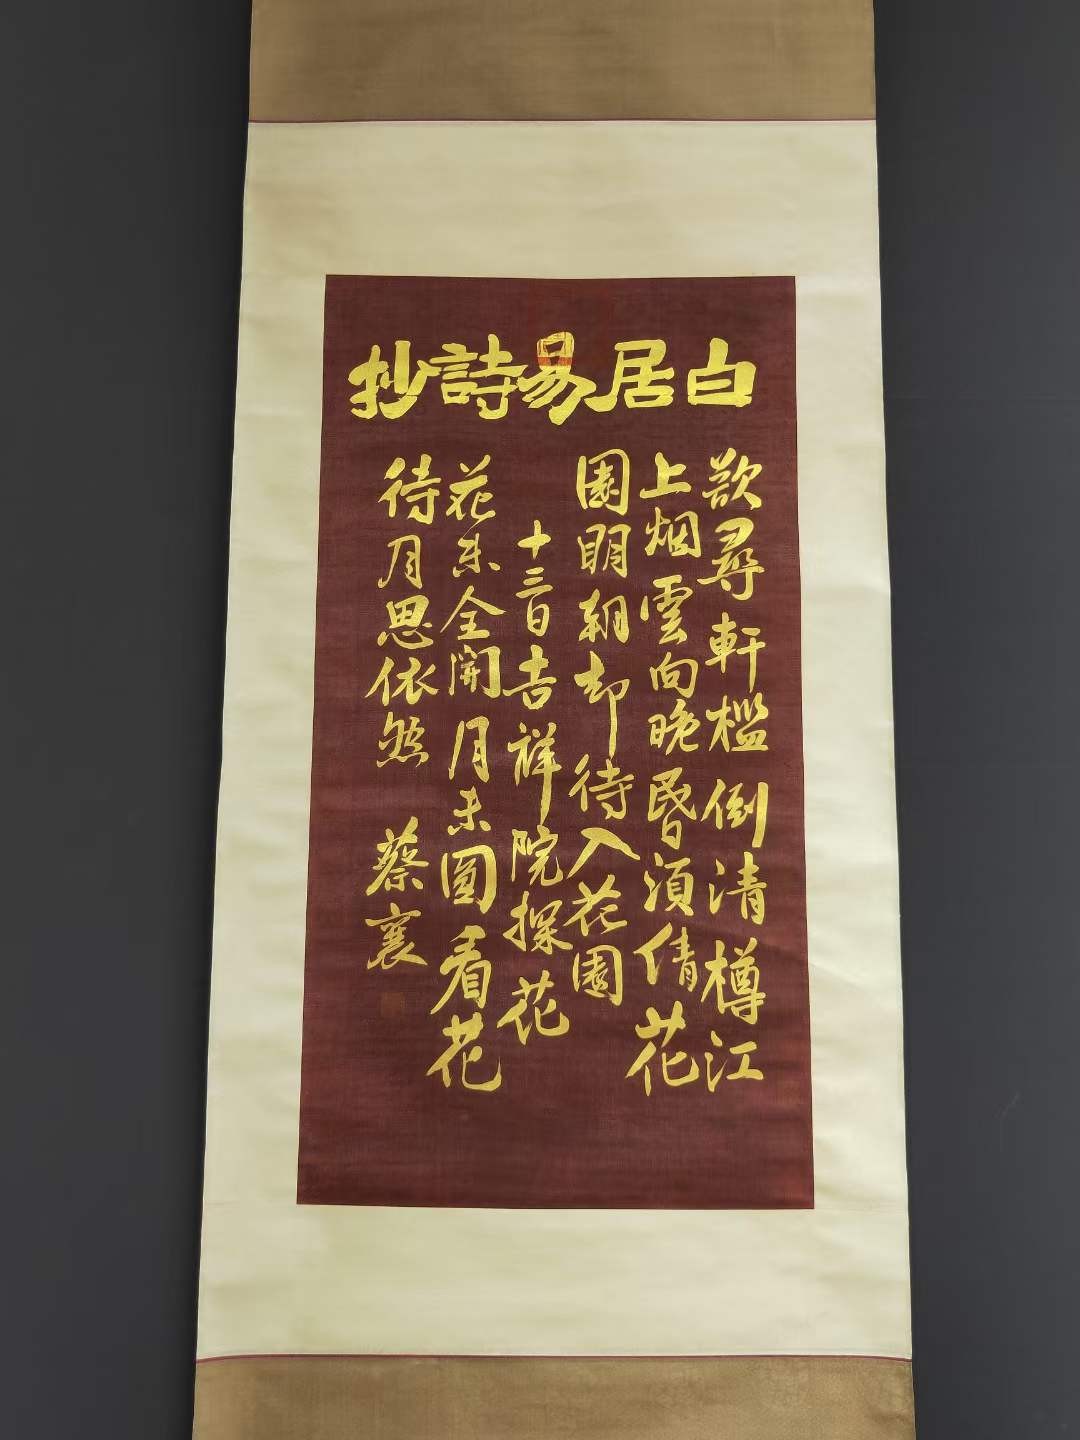 白居易詩抄
欲尋軒檻倒清樽江
上烟雲向晚昏須倩花
園明朝却待入花園
十三日吉祥院探花
花未全開月未圓看花
待月思依然 蔡襄